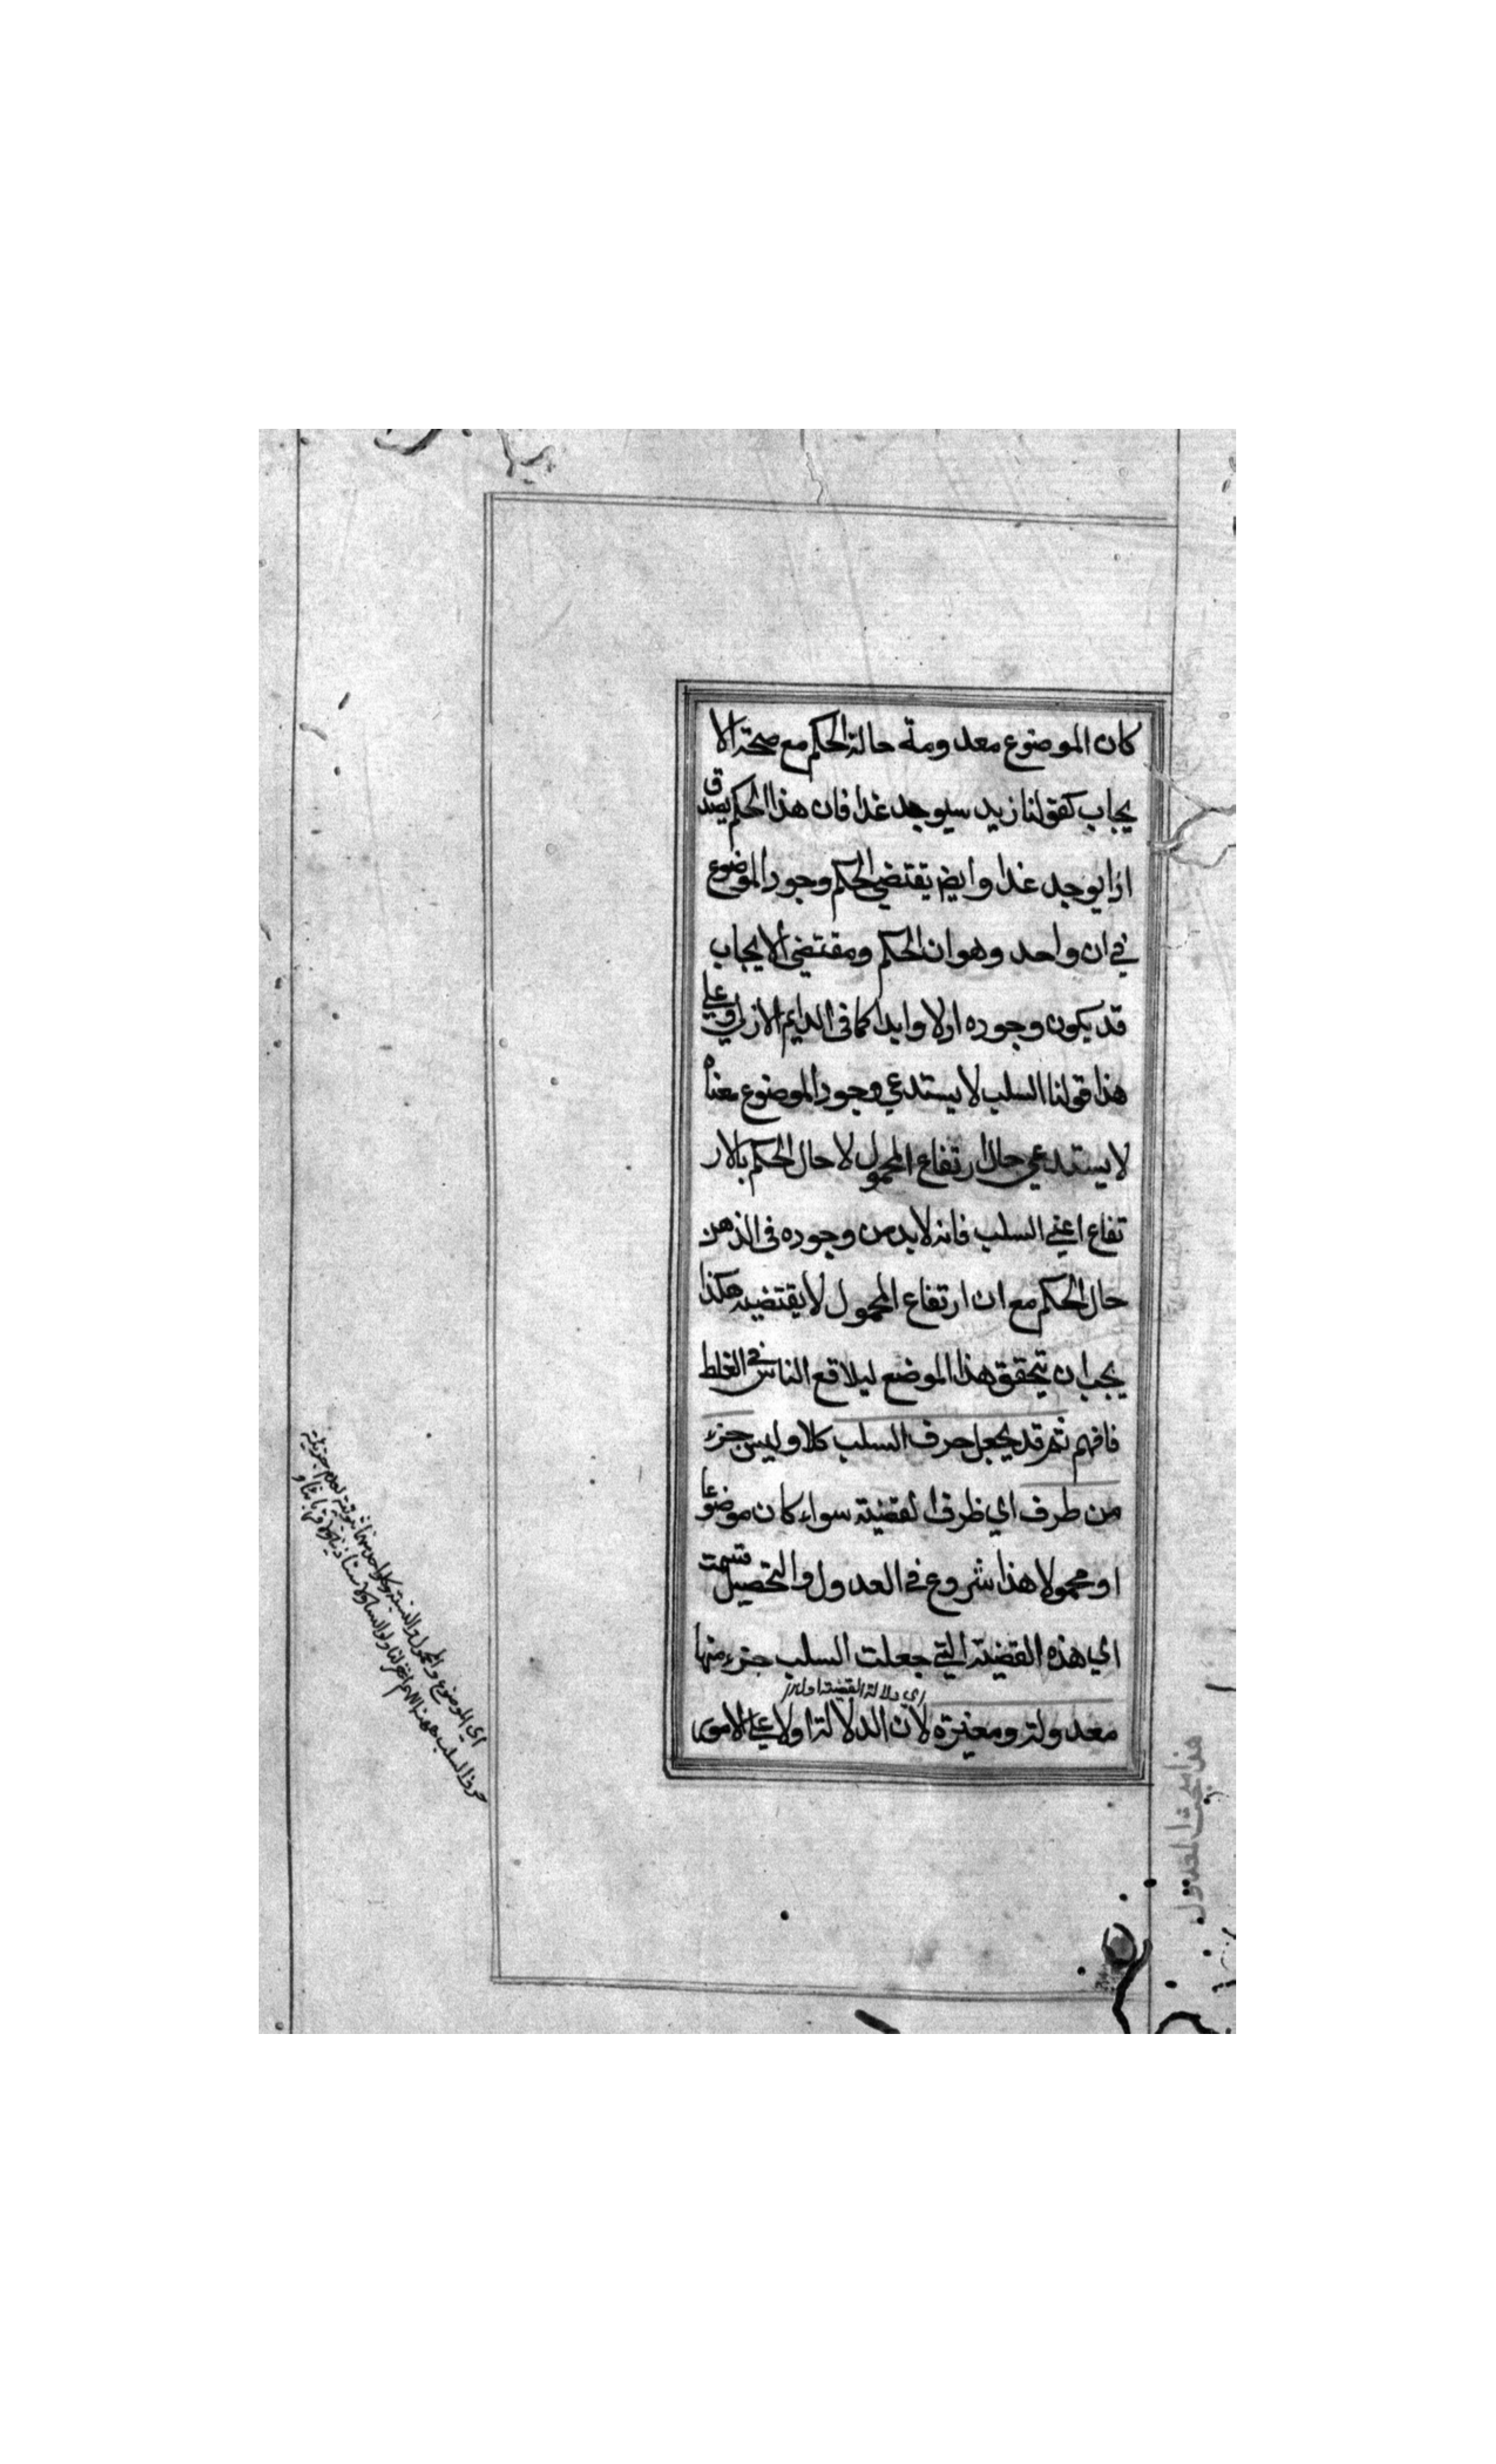 كان الموضوع معدومة حالة الحكم مع صحة الا
يجاب كقولنا زيد سيوجد غدا فان هذا الحكم يصدق
اذا يوجد غدا وايض يقتضي الحكم وجود الموضوع
في ان واحد وهو ان الحكم ومقتضى الايجاب
قد يكون وجوده اولا وابدا كما في الدايم الازلي وعلي
هذا قولنا السلب لا يستدعي وجود الموضوع معناه
لا يستدعي حال ارتفاع المحمول لا حال الحكم بالار
تفاع اعني السلب فانه لا بد من وجوده في الذهن
حال الحكم مع ان ارتفاع المحمول لا يقتضيه هكذا
يجب ان يتحقق هذا الموضع ليلا قع الناس في الغلط
فافهم ثم قد يجعل حرف السلب كلا وليس جزء
من طرف اي ظرف القضية سواء كان موضوعا
او محمولا هذا شروع في العدول والتحصيل فسميت
اي هذه القضية التي جعلت السلب جزء منها
اي دلالة القضية اولا
معدولة ومغيرة لان الدلالة اولا على الامور
اي الموضوع والمحمول والنسبة
حرف السلب ههنا
هذا بحث المعدول